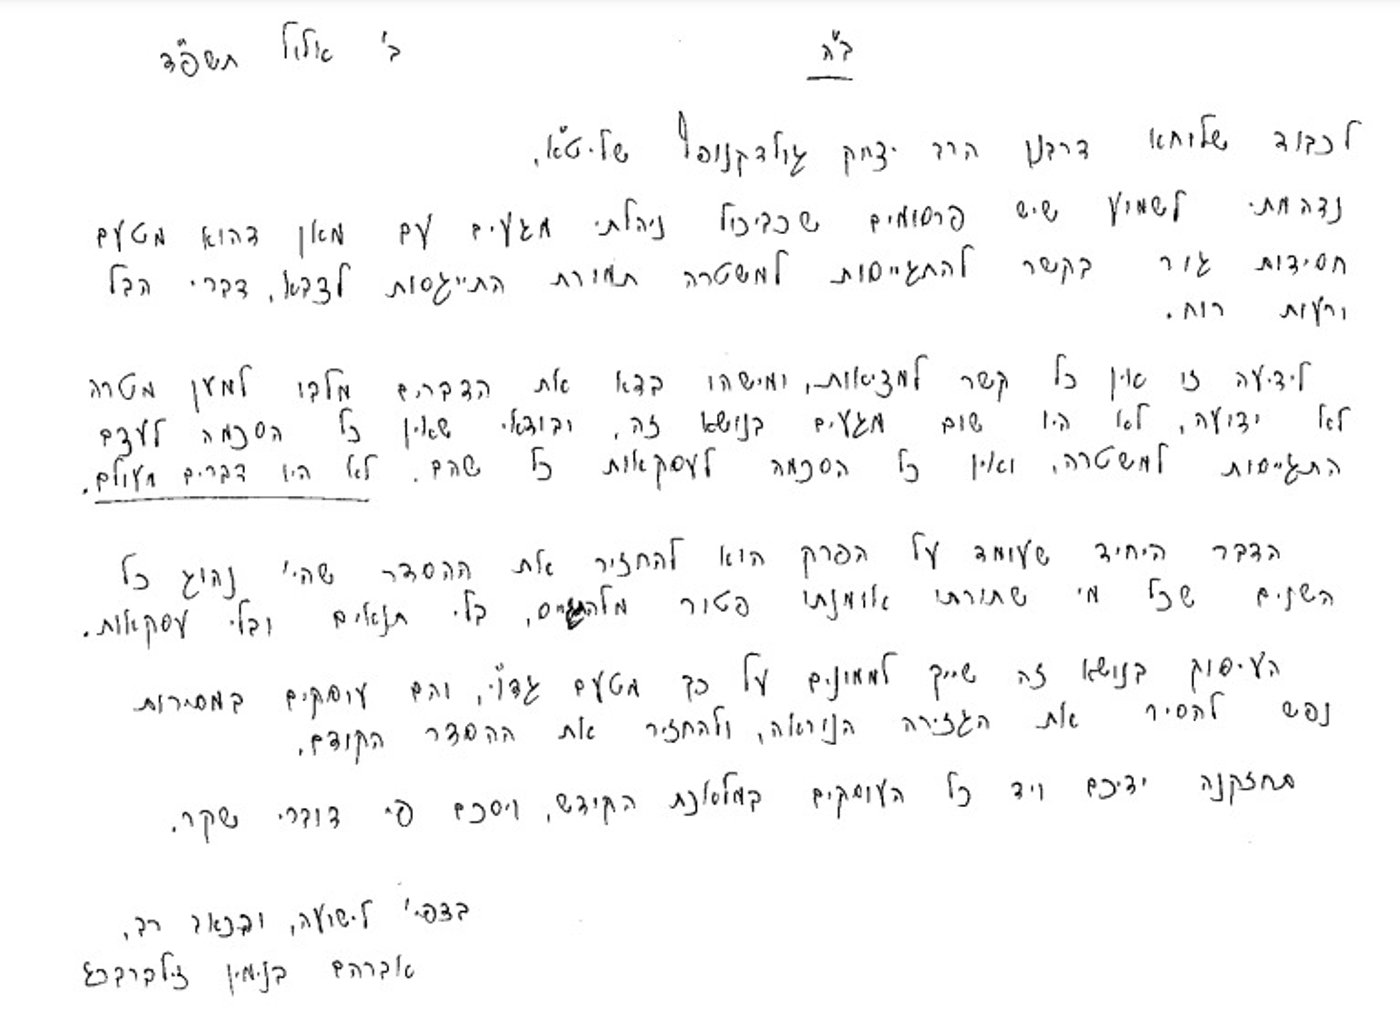 ב"ה ב' אלול תשפ"ד
לכבוד שלוחא דרבנן הרב יצחק גולדקנופף שליט"א,
נדהמתי לשמוע שיש פרסומים שכביכול ניהלתי מגעים עם מאן דהוא מטעם
חסידות גור בקשר להתגייסות למשטרה תמורת התייגסות לצבא, דברי הבל
ורעות רוח.
לידיעה זו אין כל קשר למציאות, ומישהו בדא את הדברים מלבו למען מטרה
לא ידועה, לא היו שום מגעים בנושא זה, ובודאי שאין כל הסכמה לעצם
התגייסות למשטרה, ואין כל הסכמה לעסקאות כל שהם. לא היו דברים מעולם.
הדבר היחיד שעומד על הפרק הוא להחזיר את ההסדר שהי' נהוג כל
השנים שכל מי שתורתו אומנתו פטור מלהתגייס, בלי תנאים ובלי עסקאות.
העיסוק בנושא זה שייך לממונים על כך מטעם גדו"י, והם עוסקים במסירות
נפש להסיר את הגזירה הנוראה, ולהחזיר את ההסדר הקודם.
תחזקנה ידיכם ויד כל העוסקים במלאכת הקודש, ויסכר פי דוברי שקר.
בצפי' לישועה, ובכאב רב,
אברהם בנימין זילברברג